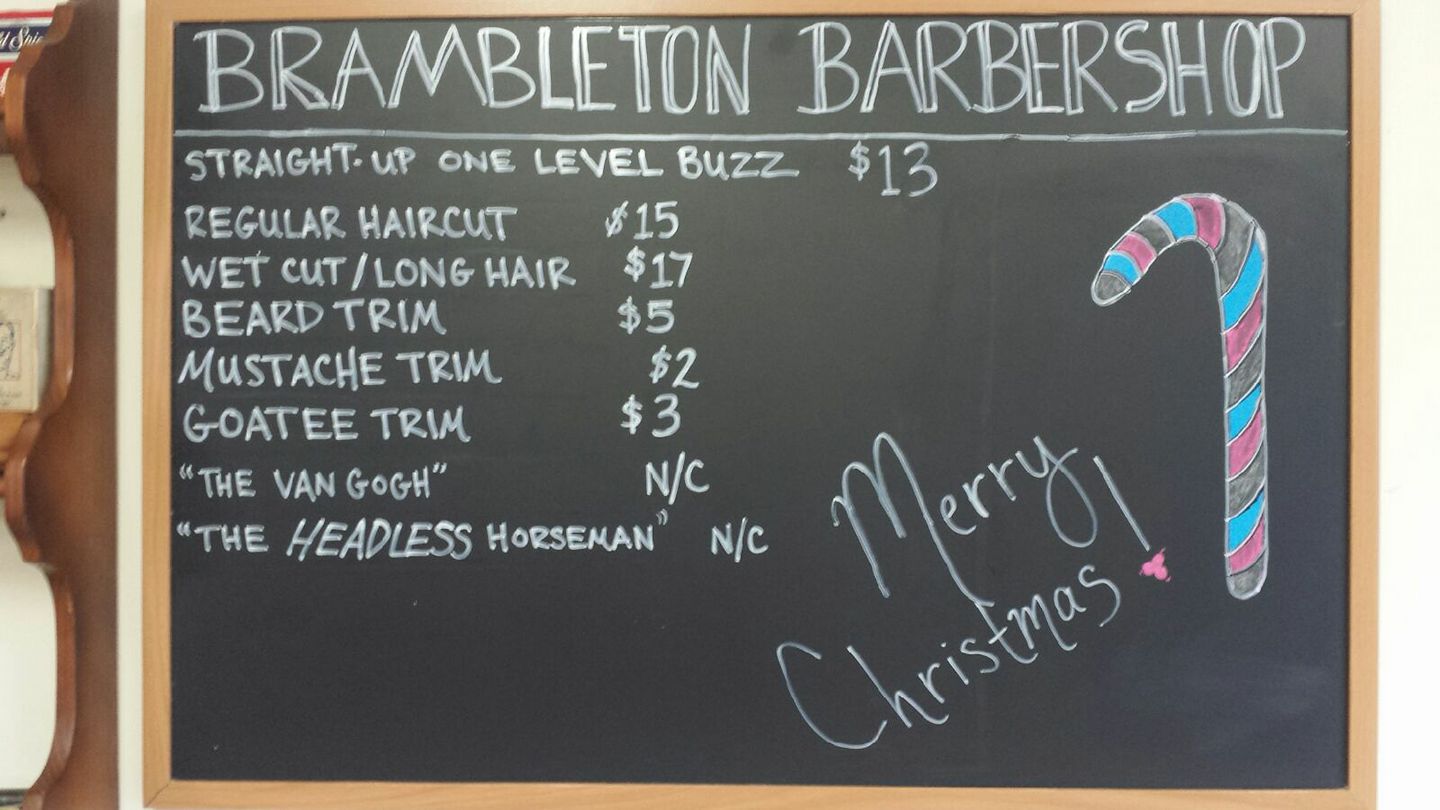 BRAMBLETON BARBERSHOP
STRAIGHT-UP ONE LEVEL BUZZ $13
REGULAR HAIRCUT $15
WET CUT/LONG HAIR $17
BEARD TRIM $5
MUSTACHE TRIM $2
GOATEE TRIM $3
"THE VAN GOGH" N/C
"THE HEADLESS HORSEMAN" N/C
Merry
Christmas!